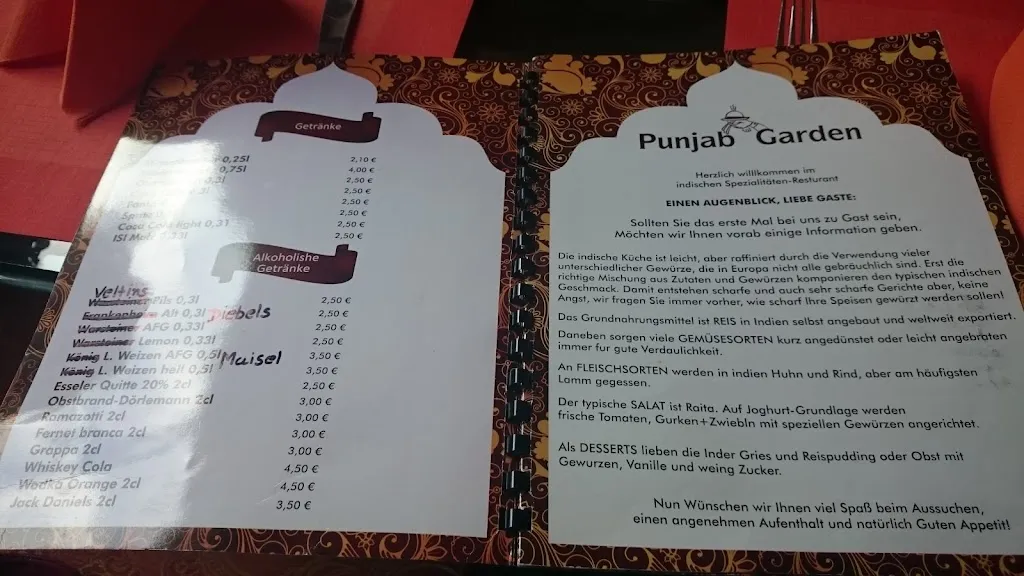 Getränke
0,25l 2,10 €
0,75l 4,00 €
2,50 €
2,50 €
2,50 €
2,50 €
Coca Cola light 0,3l 2,50 €
ISI Malz 0,33l 2,50 €
Alkoholishe
Getränke
Veltins
Warsteiner Pils 0,3l 2,50 €
Frankenheim Alt 0,3l Diebels 2,50 €
Warsteiner AFG 0,33l 2,50 €
Warsteiner Lemon 0,33l 2,50 €
König L. Weizen AFG 0,5l Maisel 3,50 €
König L. Weizen hell 0,5l 3,50 €
Esseler Quitte 20% 2cl 2,50 €
Obstbrand-Dörlemann 2cl 3,00 €
Ramazotti 2cl 3,00 €
Fernet branca 2cl 3,00 €
Grappa 2cl 3,00 €
Whiskey Cola 4,50 €
Wodka Orange 2cl 4,50 €
Jack Daniels 2cl 3,50 €
Punjab Garden
Herzlich willlkommen im
indischen Spezialitäten-Resturant
EINEN AUGENBLICK, LIEBE GASTE:
Sollten Sie das erste Mal bei uns zu Gast sein,
Möchten wir Ihnen vorab einige Information geben.
Die indische Küche ist leicht, aber raffiniert durch die Verwendung vieler
unterschiedlicher Gewürze, die in Europa nicht alle gebräuchlich sind. Erst die
richtige Mischung aus Zutaten und Gewürzen komponieren den typischen indischen
Geschmack. Damit entstehen scharfe und auch sehr scharfe Gerichte aber, keine
Angst, wir fragen Sie immer vorher, wie scharf Ihre Speisen gewürzt werden sollen!
Das Grundnahrungsmittel ist REIS in Indien selbst angebaut und weltweit exportiert.
Daneben sorgen viele GEMÜSESORTEN kurz angedünstet oder leicht angebraten
immer fur gute Verdaulichkeit.
An FLEISCHSORTEN werden in indien Huhn und Rind, aber am häufigsten
Lamm gegessen.
Der typische SALAT ist Raita. Auf Joghurt-Grundlage werden
frische Tomaten, Gurken+Zwiebln mit speziellen Gewürzen angerichtet.
Als DESSERTS lieben die Inder Gries und Reispudding oder Obst mit
Gewurzen, Vanille und weing Zucker.
Nun Wünschen wir Ihnen viel Spaß beim Aussuchen,
einen angenehmen Aufenthalt und natürlich Guten Appetit!